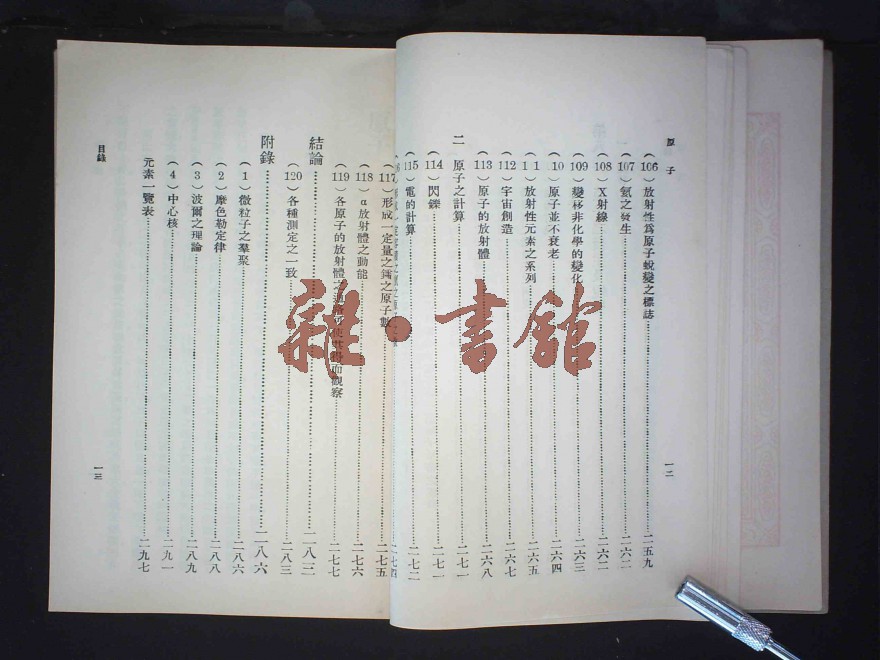 原子
(106)放射性爲原子蛻變之標誌……二五九
(107)氦之發生……二六二
(108)X射線……二六二
(109)變移非化學的變化……二六三
(110)原子並不衰老……二六四
(111)放射性元素之系列……二六五
(112)宇宙創造……二六七
(113)原子的放射體……二六八
二 原子之計算……二七一
(114)閃鑠……二七一
(115)電的計算……二七二
一二
(117)形成一定量之氦之原子數……二七五
(118)α放射體之動能……二七六
(119)各原子的放射體之觀察……二七七
結論……二八三
(120)各種測定之一致……二八三
附錄……二八六
(1)微粒子之羣聚……二八六
(2)摩色勒定律……二八八
(3)波爾之理論……二八九
(4)中心核……二九一
元素一覽表……二九七
目錄
一三
雜·書館